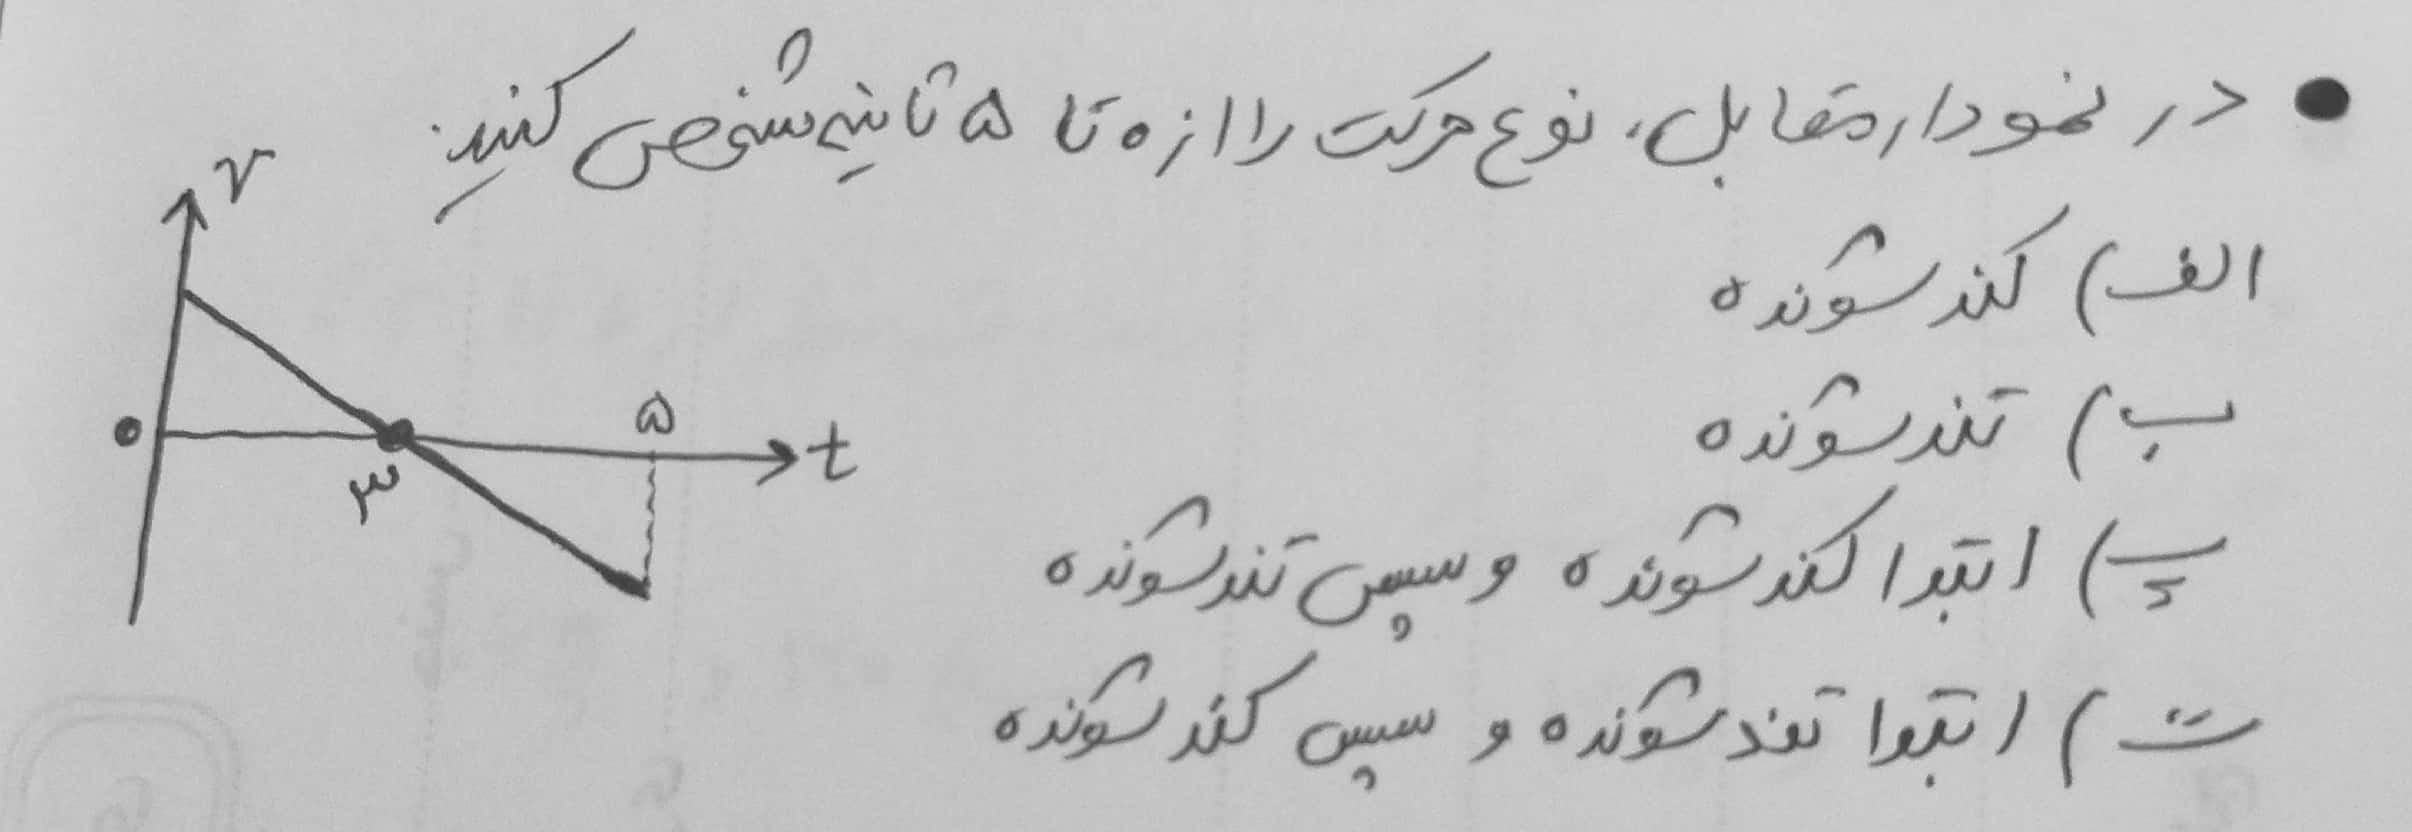 ● در نمودار مقابل، نوع حرکت را از ۰ تا ۵ ثانیه مشخص کنید:
الف) کند شونده
ب) تند شونده
پ) ابتدا کند شونده و سپس تند شونده
ت) ابتدا تند شونده و سپس کند شونده
v
۰
۳
۵
t